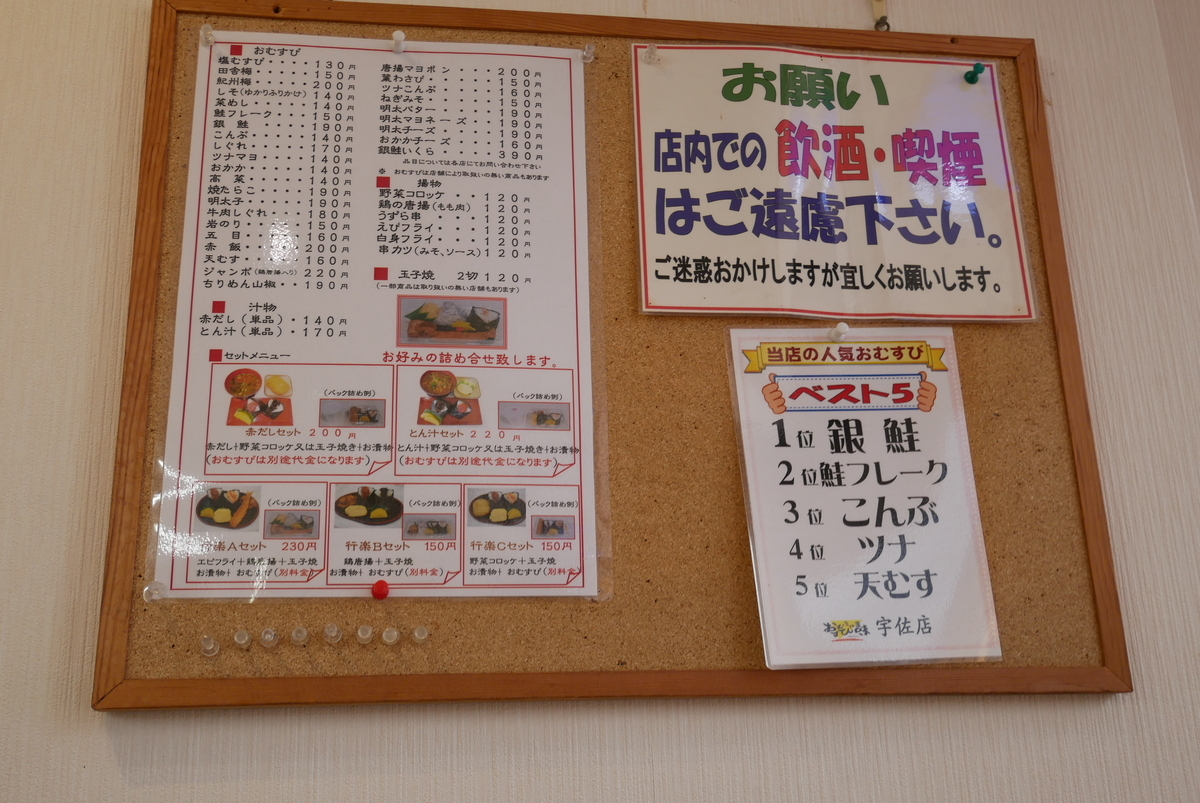 ■ おむすび
塩むすび・・・・・130円
田舎梅・・・・・150円
紀州梅・・・・・200円
しそ(ゆかりふりかけ)140円
菜めし・・・・・140円
鮭フレーク・・・150円
銀 鮭 ・・・・190円
こんぶ・・・・・140円
しぐれ・・・・・170円
ツナマヨ・・・・140円
おかか・・・・・140円
高 菜・・・・・140円
焼たらこ・・・・190円
明太子・・・・・190円
牛肉しぐれ・・・180円
岩のり・・・・・150円
五 目・・・・・160円
赤 飯・・・・・200円
天むす・・・・・160円
ジャンボ(鶏唐揚入り)220円
ちりめん山椒・・190円
■ 汁物
赤だし(単品)・140円
とん汁(単品)・170円
唐揚マヨポン・・・・200円
葉わさび・・・・・150円
ツナこんぶ・・・・160円
ねぎみそ・・・・・150円
明太バター・・・・190円
明太マヨネーズ・・190円
明太チーズ・・・・190円
おかかチーズ・・・160円
銀鮭いくら・・・・390円
品目については各店にてお問い合わせ下さい
※ おむすびは店舗により取扱いの無い商品もあります
■ 揚物
野菜コロッケ・・・120円
鶏の唐揚(もも肉) 120円
うずら串・・・・120円
えびフライ・・・120円
白身フライ・・・120円
串カツ(みそ、ソース)120円
■ 玉子焼 2切 120円
(一部商品は取り扱いの無い店舗もあります)
お好みの詰め合せ致します。
■セットメニュー
(パック詰め例)
赤だしセット 200円
赤だし+野菜コロッケ又は玉子焼き+お漬物
(おむすびは別途代金になります)
(パック詰め例)
とん汁セット 220円
とん汁+野菜コロッケ又は玉子焼き+お漬物
(おむすびは別途代金になります)
(パック詰め例)
行楽Aセット 230円
エビフライ+鶏唐揚+玉子焼
お漬物+ おむすび(別料金)
(パック詰め例)
行楽Bセット 150円
鶏唐揚+玉子焼
お漬物+ おむすび(別料金)
(パック詰め例)
行楽Cセット 150円
野菜コロッケ+玉子焼
お漬物+ おむすび(別料金)
お願い
店内での飲酒・喫煙
はご遠慮下さい。
ご迷惑おかけしますが宜しくお願いします。
当店の人気おむすび
ベスト5
1位 銀鮭
2位 鮭フレーク
3位 こんぶ
4位 ツナ
5位 天むす
宇佐店